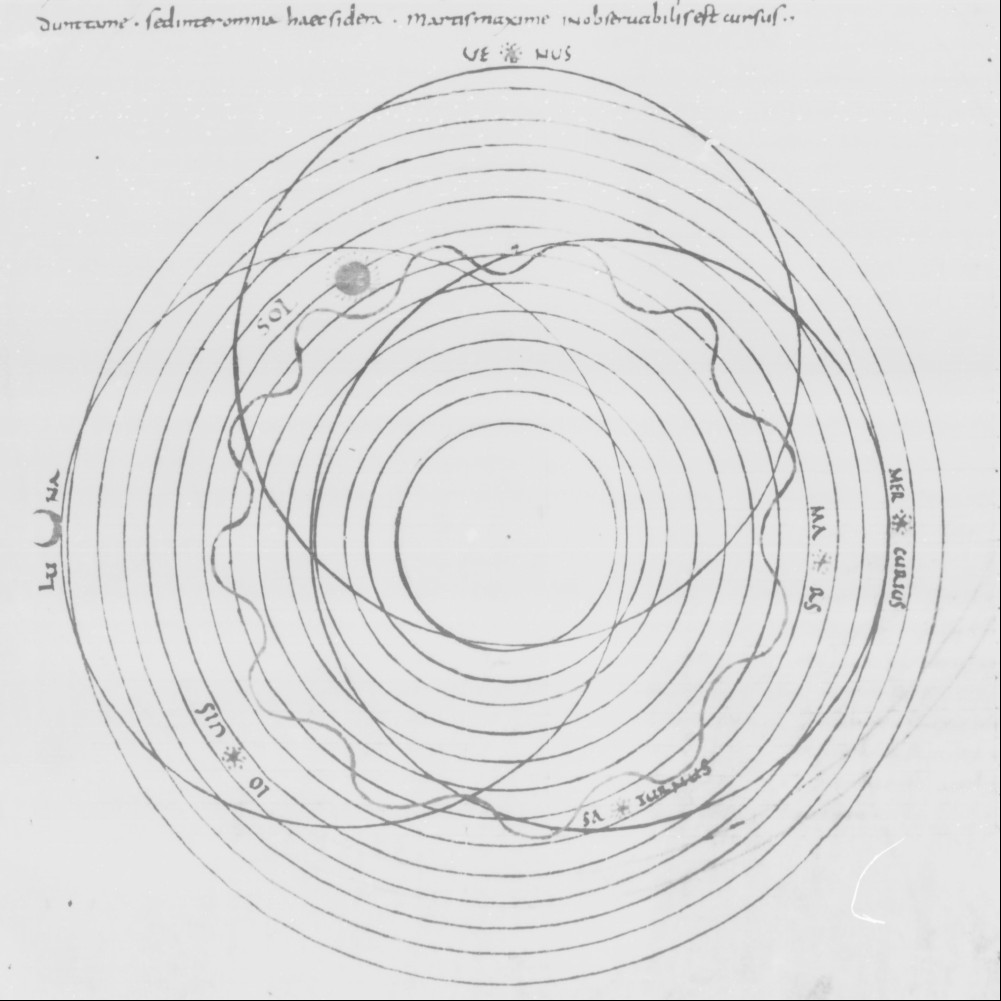 dunttame · sed inter omnia haec sidera · Martis maxime inobseruabilis est cursus ··
UE NUS
SOL
LU NA
MER CURIUS
MA RS
IO UIS
SA TURNUS